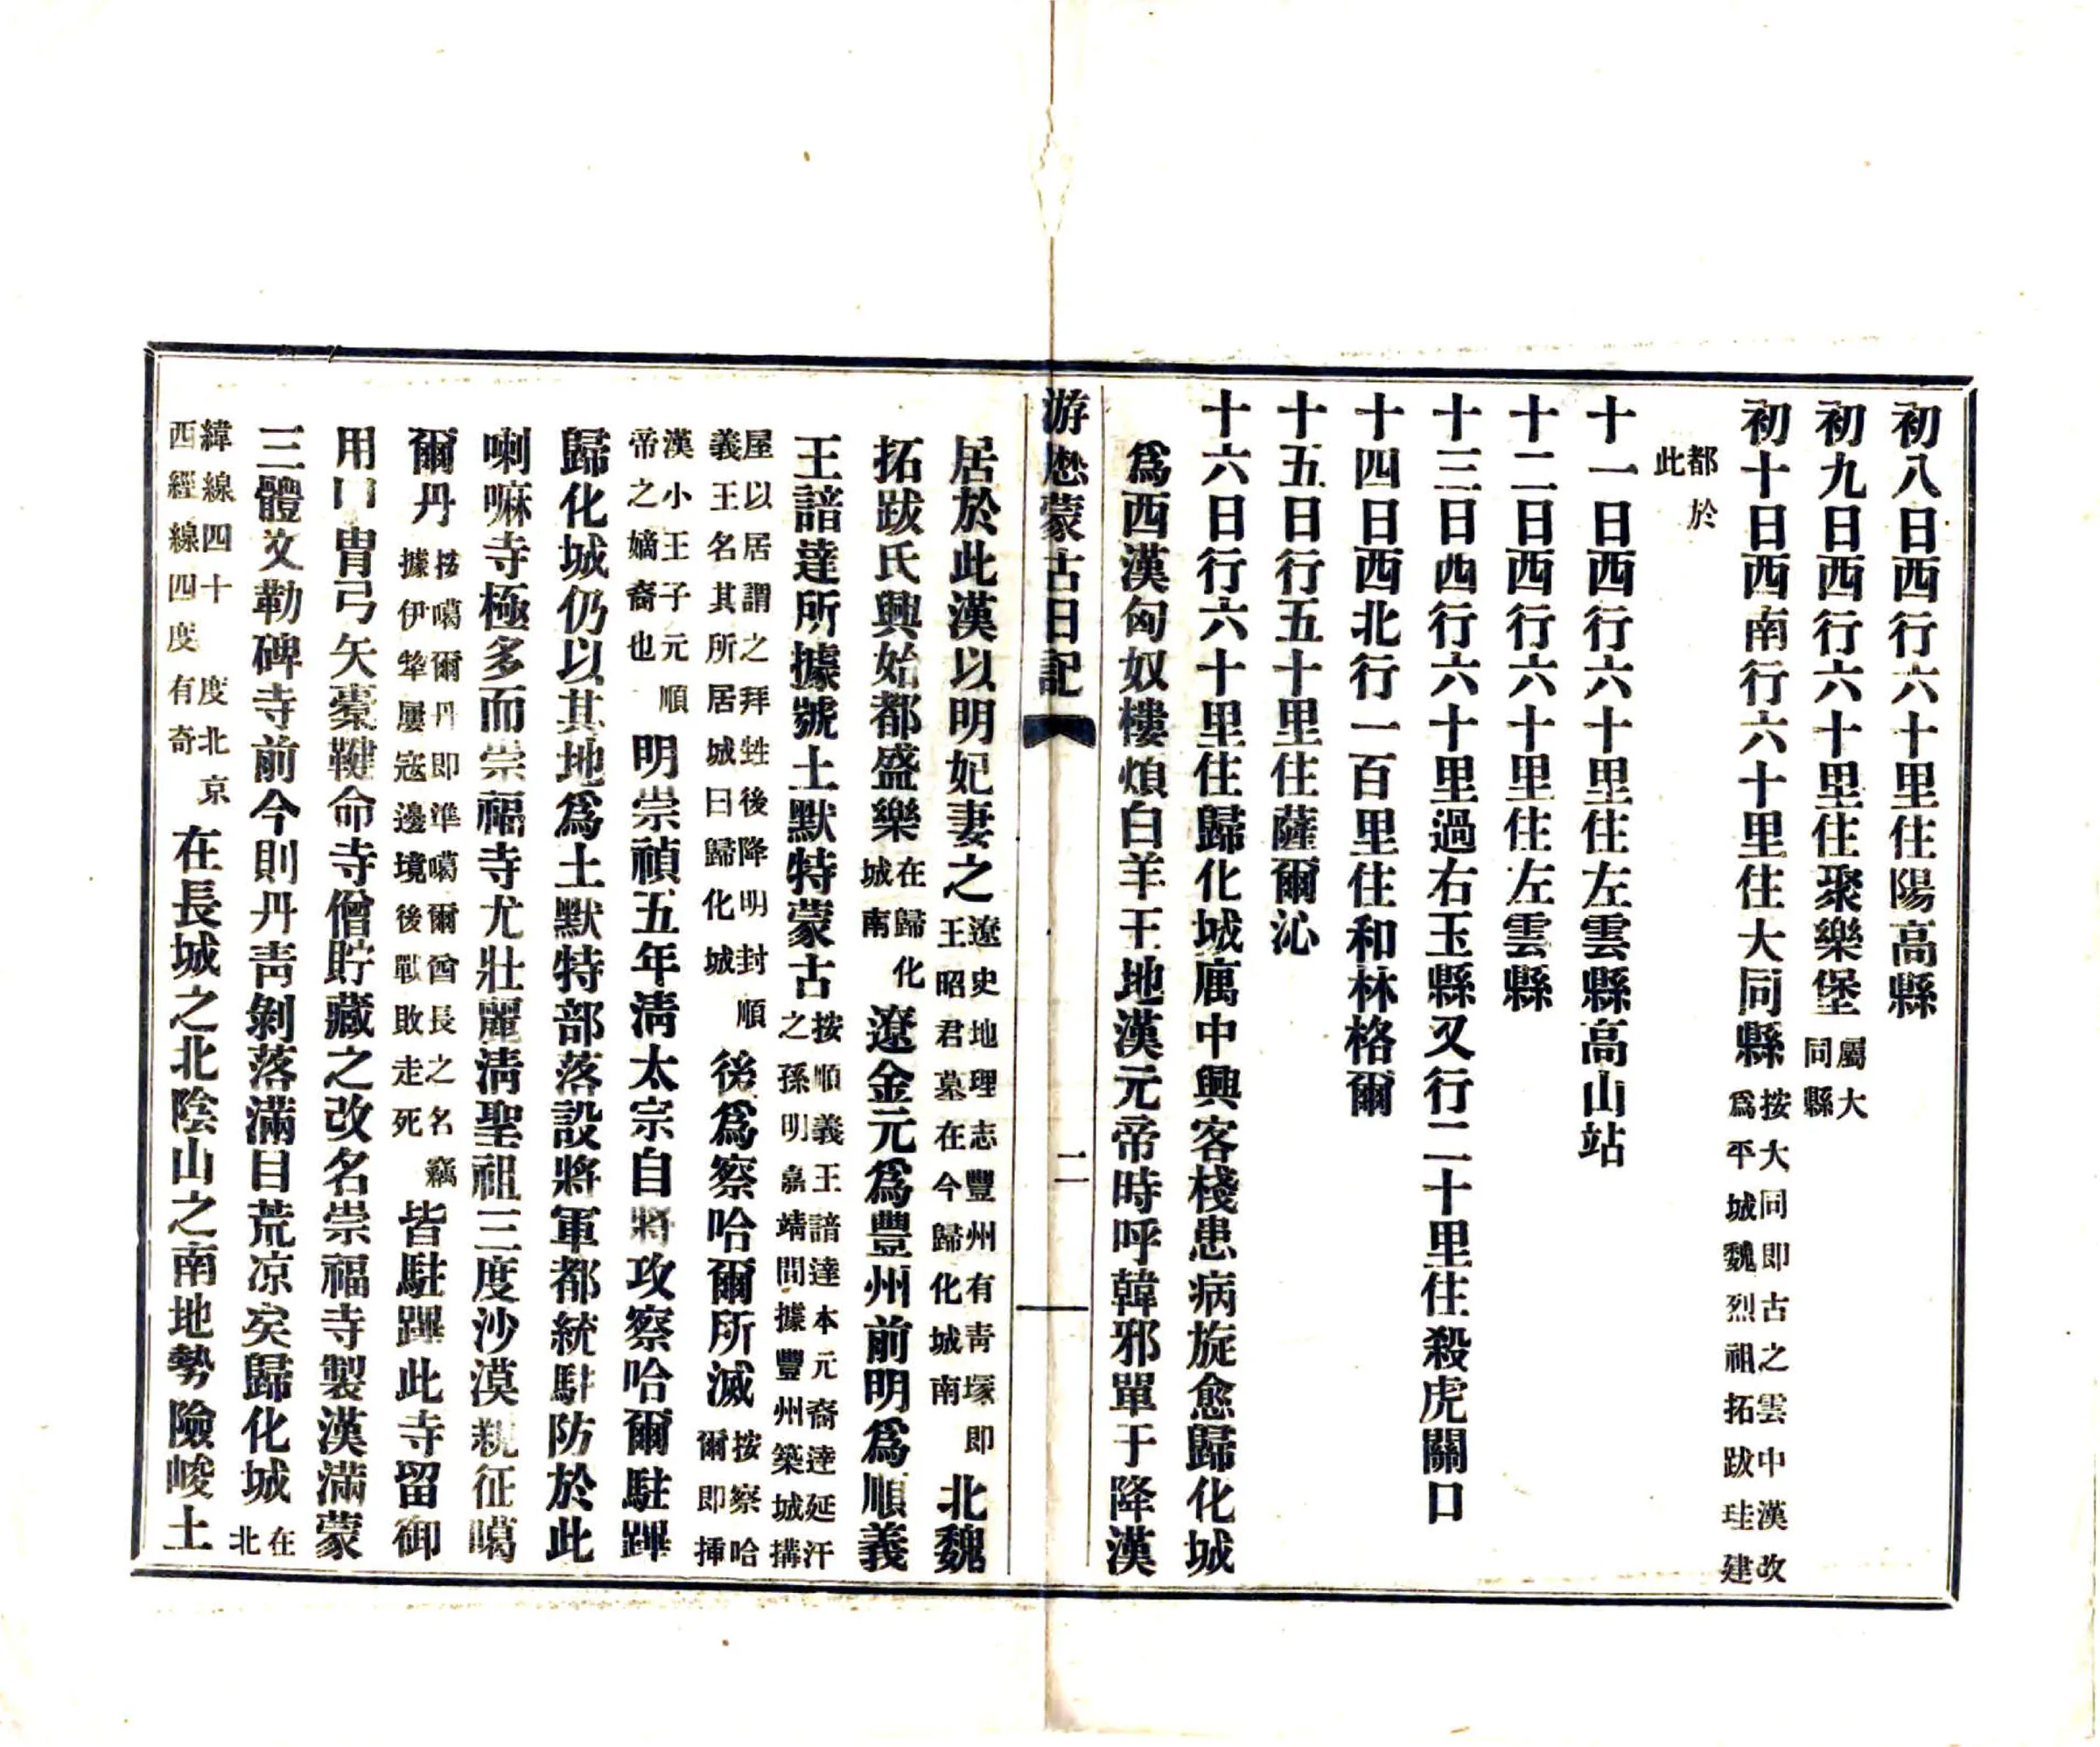 初八日西行六十里住陽高縣
初九日西行六十里住聚樂堡屬大同縣
初十日西南行六十里住大同縣按大同即古之雲中漢改爲平城魏烈祖拓跋珪建
都於此
十一日西行六十里住左雲縣高山站
十二日西行六十里住左雲縣
十三日西行六十里過右玉縣又行二十里住殺虎關口
十四日西北行一百里住和林格爾
十五日行五十里住薩爾沁
十六日行六十里住歸化城寓中興客棧患病旋愈歸化城
爲西漢匈奴樓煩白羊王地漢元帝時呼韓邪單于降漢
游歷蒙古日記 二
居於此漢以明妃妻之遼史地理志豐州有靑塚即王昭君墓在今歸化城南北魏
拓跋氏興始都盛樂在歸化城南遼金元爲豐州前明爲順義
王諳達所據號土默特蒙古按順義王諳達本元裔達延汗之孫明嘉靖間據豐州築城搆
屋以居謂之拜甡後降明封順義王名其所居城曰歸化城後爲察哈爾所滅按察哈爾即插
漢小王子元順帝之嫡裔也明崇禎五年淸太宗自將攻察哈爾駐蹕
歸化城仍以其地爲土默特部落設將軍都統駐防於此
喇嘛寺極多而崇福寺尤壯麗淸聖祖三度沙漠親征噶
爾丹按噶爾丹即準噶爾酋長之名竊據伊犂屢寇邊境後戰敗走死皆駐蹕此寺留御
用口冑弓矢櫜鞬命寺僧貯藏之改名崇福寺製漢滿蒙
三體文勒碑寺前今則丹靑剝落滿目荒凉矣歸化城在北
緯線四十度北京西經線四度有奇在長城之北陰山之南地勢險峻土